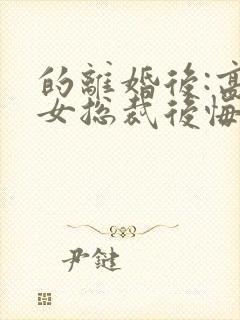 的離婚後:高
女总裁後悔
尹鍵